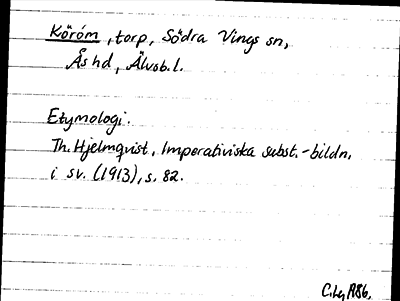 Köröm, torp, Södra Vings sn,
Ås hd, Älvsb. l.
Etymologi.
Th. Hjelmqvist, Imperativiska subst.-bildn.
i sv. (1913), s. 82.